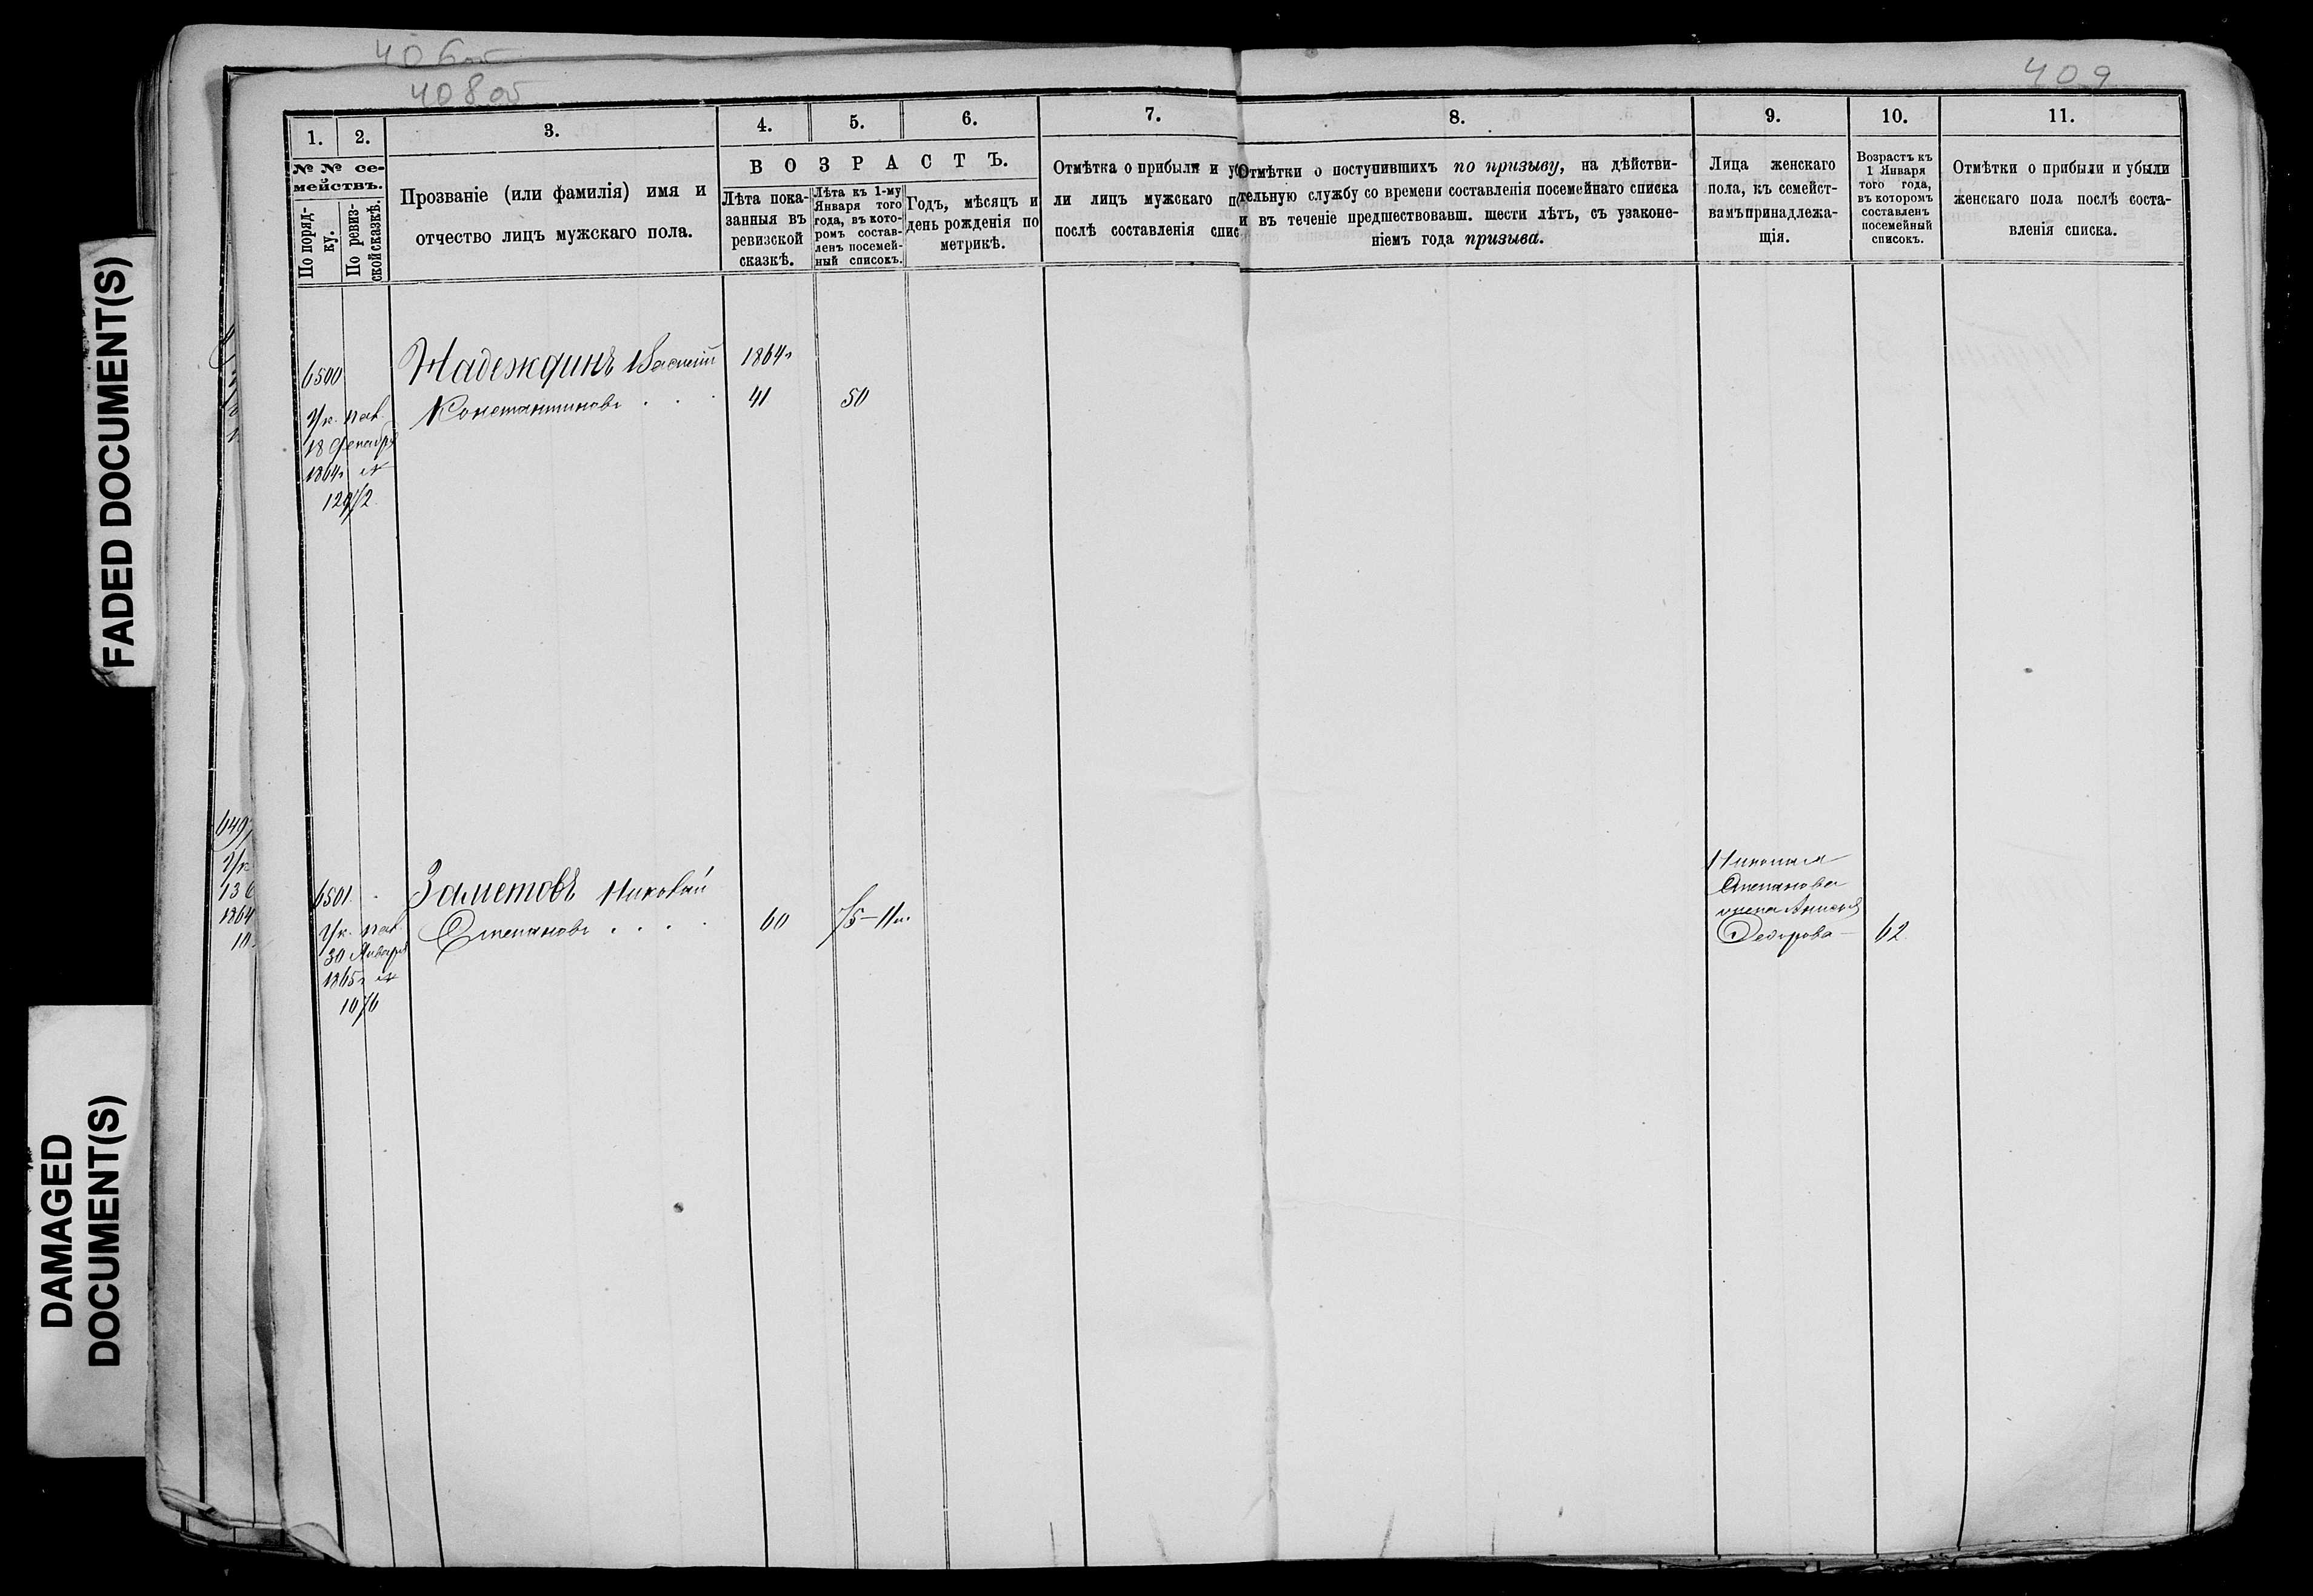 406об
408об
409
FADED DOCUMENT(S)
DAMAGED
DOCUMENT(S)
1.
2.
3.
4.
5.
6.
7.
8.
9.
10.
11.
№ № се-
мействъ.
По поряд-
ку.
По ревиз-
ской сказкѣ.
Прозваніе (или фамилія) имя и
отчество лицъ мужскаго пола.
ВОЗРАСТЪ.
Лѣта пока-
занныя въ
ревизской
сказкѣ.
Лѣта къ 1-му
Января того
года, въ кото-
ромъ состав-
ленъ посемей-
ный списокъ.
Годъ, мѣсяцъ и
день рожденія по
метрикѣ.
Отмѣтка о прибыли и у
ли лицъ мужскаго по
послѣ составленія спис
Отмѣтки о поступившихъ по призыву, на дѣйстви-
тельную службу со времени составленія посемейнаго списка
и въ теченіе предшествовавш. шести лѣтъ, съ узаконе-
ніемъ года призыва.
Лица женскаго
пола, къ семейст-
вамъ принадлежа-
щія.
Возрастъ къ
1 Января
того года,
въ которомъ
составленъ
посемейный
списокъ.
Отмѣтки о прибыли и убыли
женскаго пола послѣ соста-
вленія списка.
6500
Надеждинъ Василій
1864г
Ук. пал.
Константиновъ . . .
41
50
18 Декабря
1864г №
12972
649
Ук
13
1864
10
6501
Заметовъ Николай
Ук. пал.
Степановъ . . . .
60
75-11м.
30 Января
1865г №
1076
Николая
Степанова
жена Анисья
Федорова
62